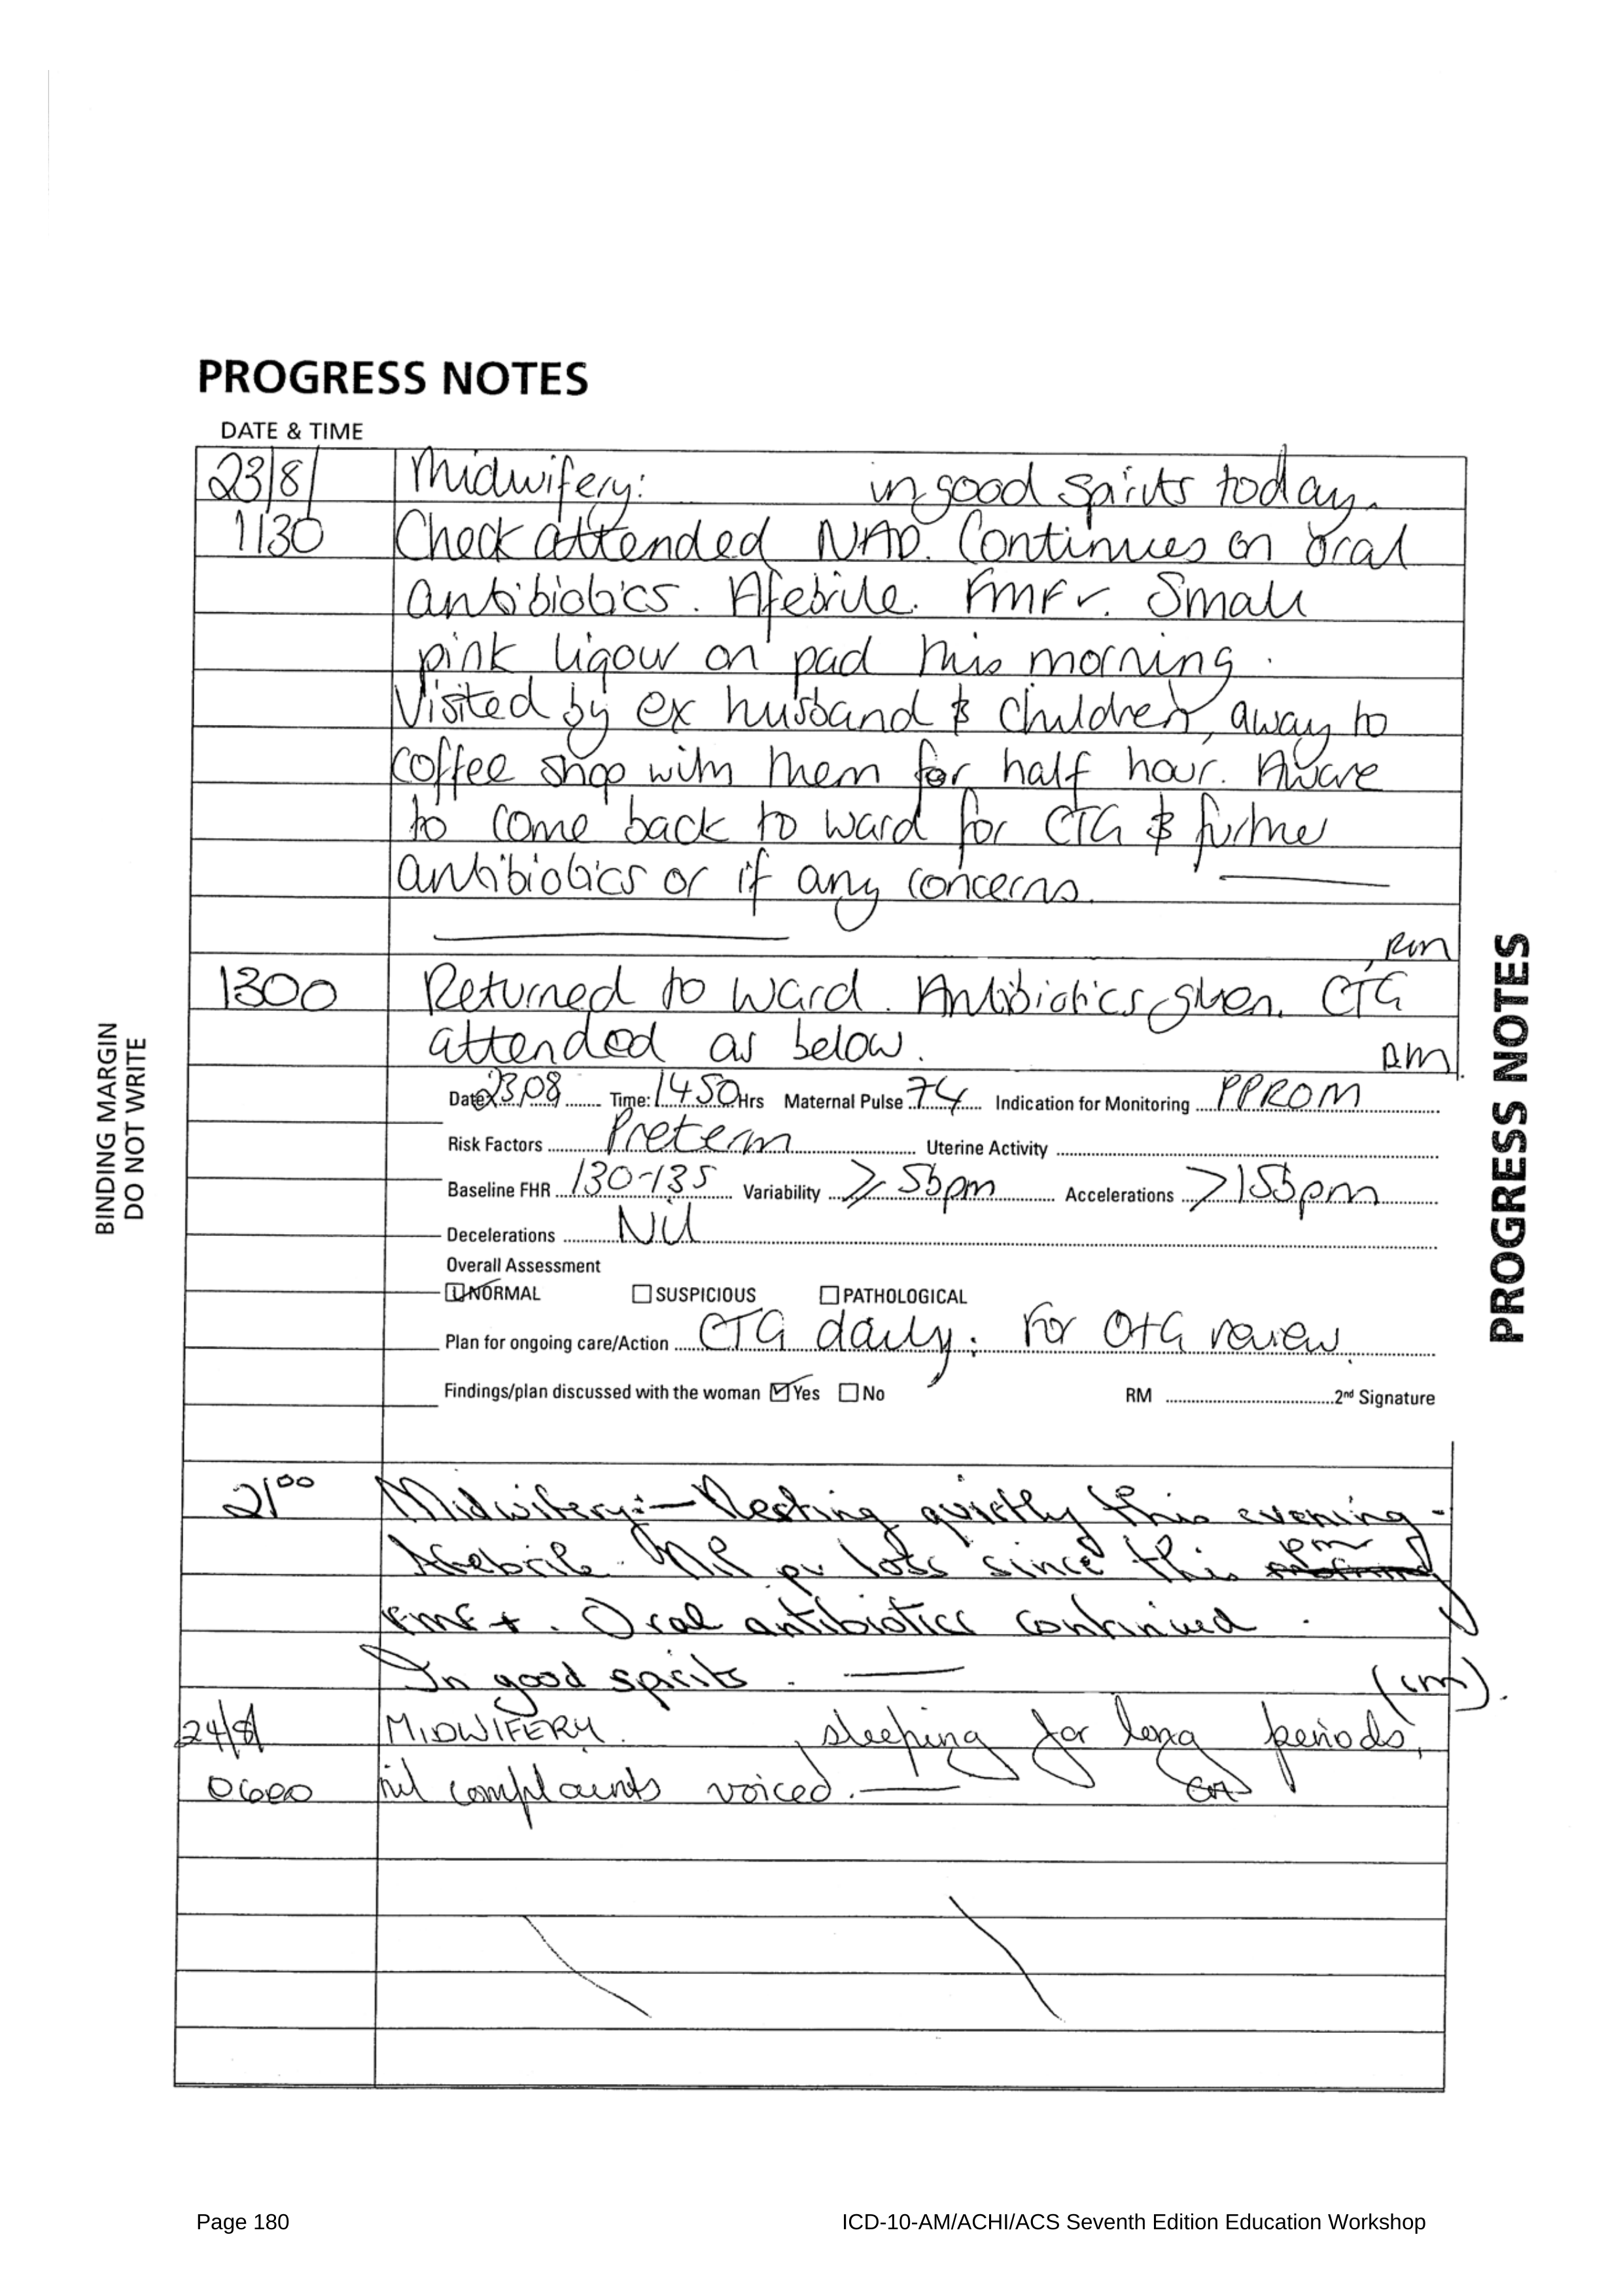 PROGRESS NOTES
DATE & TIME
23/8/ Midwifery: in good spirits today.
1130 Check attended NAD. Continues on oral
antibiotics. Afebrile. FMF✓. Small
pink liqour on pad this morning.
Visited by ex husband & children, away to
coffee shop with them for half hour. Aware
to come back to ward for CTG & further
antibiotics or if any concerns.
RM
1300 Returned to ward. Antibiotics given. CTG
attended as below. RM
Date 23.08 Time: 1450 Hrs Maternal Pulse 74 Indication for Monitoring PPROM
Risk Factors Preterm Uterine Activity
Baseline FHR 130-135 Variability ≥ 5bpm Accelerations >15bpm
Decelerations Nil
Overall Assessment
NORMAL SUSPICIOUS PATHOLOGICAL
Plan for ongoing care/Action CTG daily. For O+G review.
Findings/plan discussed with the woman Yes No RM 2nd Signature
2100 Midwifery:- Resting quietly this evening.
Afebrile. Nil pv loss since this pm
FMF+. Oral antibiotics continued.
In good spirits.
24/8/ MIDWIFERY. , sleeping for long periods,
0600 nil complaints voiced.
BINDING MARGIN
DO NOT WRITE
PROGRESS NOTES
Page 180 ICD-10-AM/ACHI/ACS Seventh Edition Education Workshop